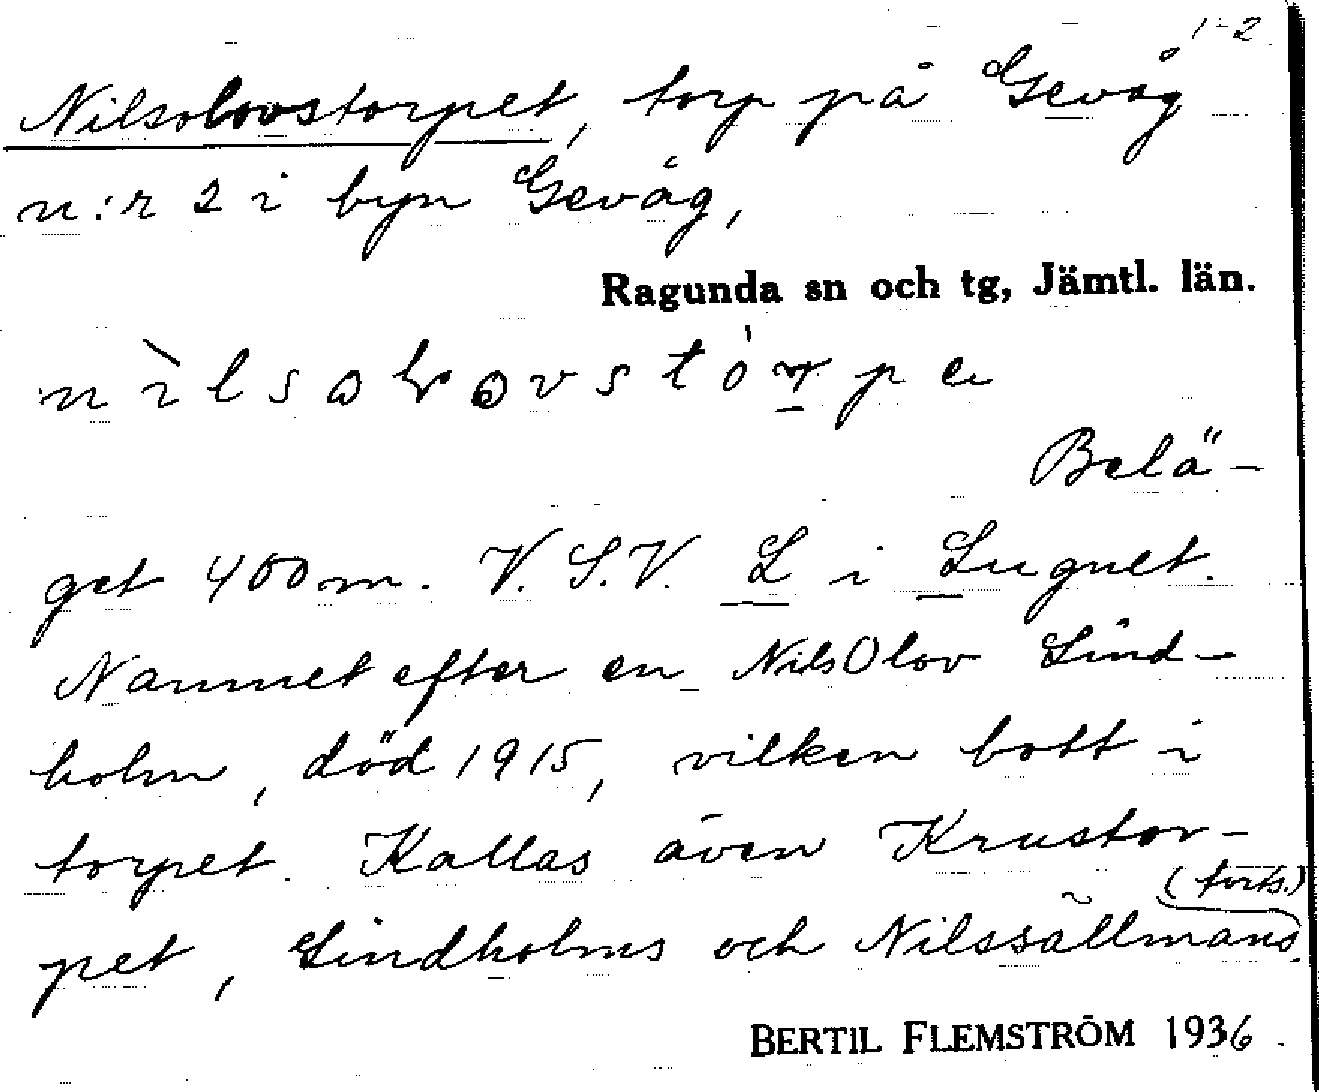 1-2
Nilsolovstorpet, torp på Gevåg
n:r 2 i byn Gevåg,
Ragunda sn och tg, Jämtl. län.
Belä-
get 400 m. V.S.V. L i Lugnet.
Namnet efter en Nils Olov Lind-
holm, död 1915, vilken bott i
torpet. Kallas även Krustor-
(forts.)
pet, Lindholms och Nilssällmans.
BERTIL FLEMSTRÖM 1936.